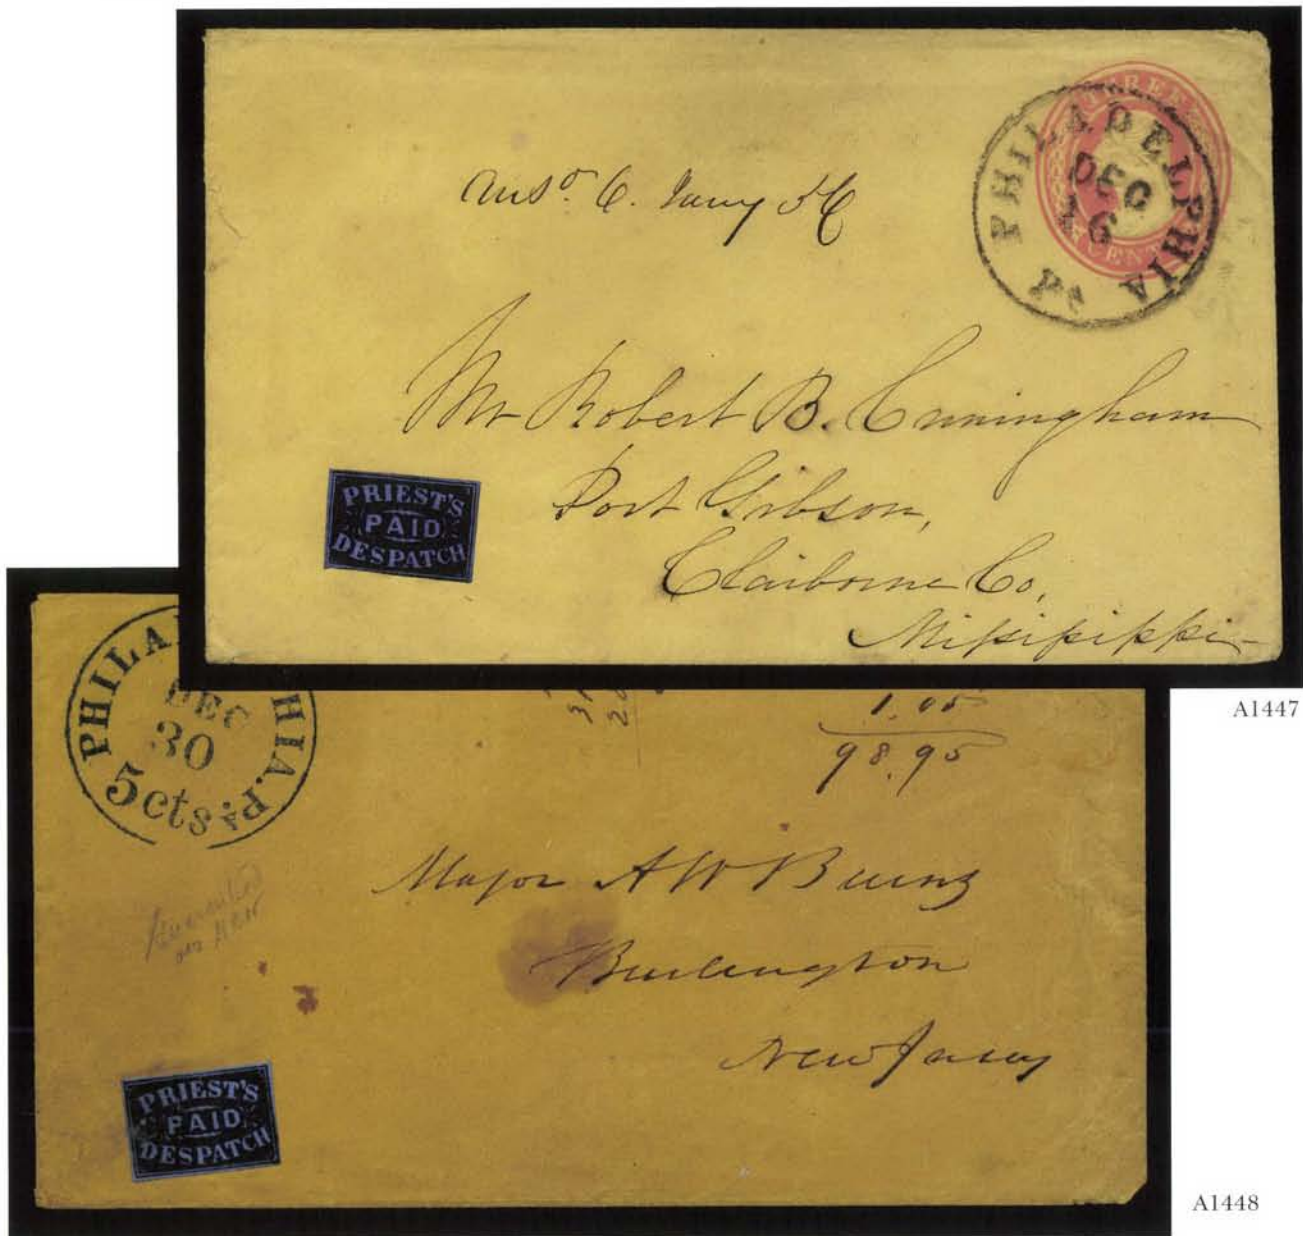 THREE
CENTS
PHILADELPHIA Pa
DEC
16
Mr Robert B. Cuningham
Port Gibson,
Claiborne Co,
Missisippi
PRIEST'S
PAID
DESPATCH
A1447
PHILA HIA. Pa
DEC
30
5cts
1.05
98.95
Major A W Burns
Burlington
New Jersey
PRIEST'S
PAID
DESPATCH
A1448